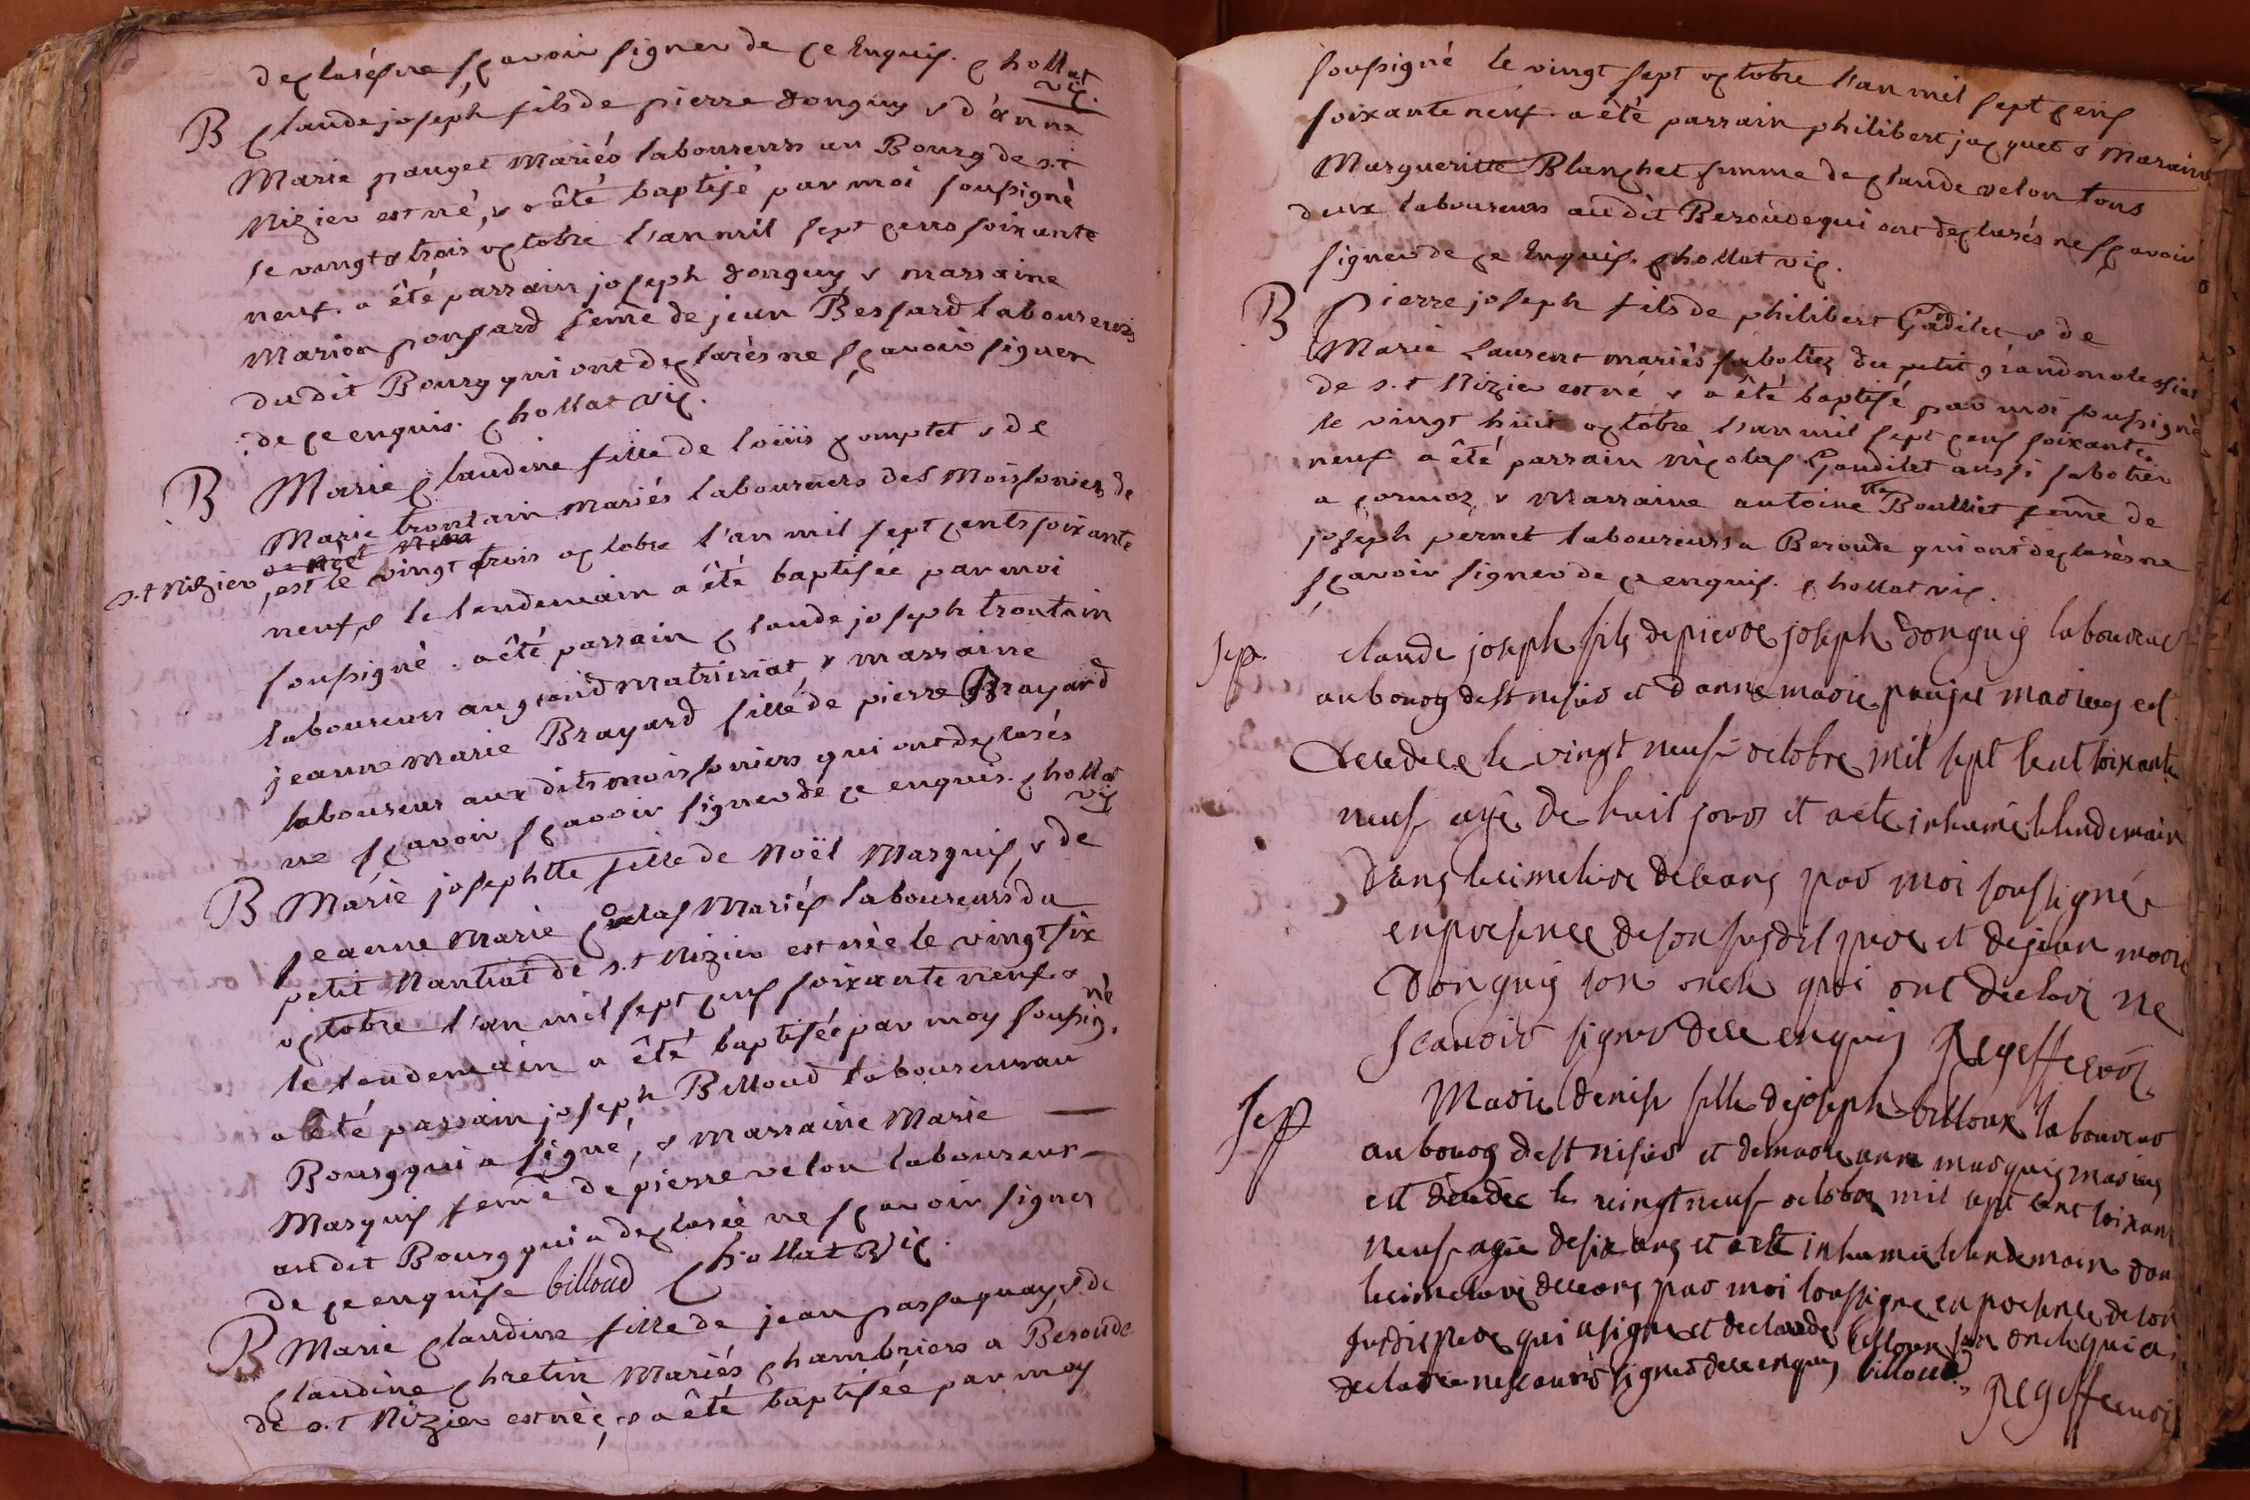 declarés ne sçavoir signer de ce Enquis. chollat
vic.
B Claude joseph fils de pierre donguy & d'anne
Marie pauget Mariés laboureurs au Bourg de s.t
Nizier est né, & a êté baptisé par moi soussigné
le vingt & trois octobre l'an mil sept cens soixante
neuf. a êté parrain joseph donguy & marraine
Marion ponsard feme de jean Bessard laboureurs
du dit Bourg qui ont declarés ne sçavoir signer
de ce enquis. chollat vic.
B Marie claudine fille de loüis comptet & de
Marie trontain Mariés laboureurs des Moissonier de
s.t Nizier est le vingt trois octobre l'an mil sept cents soixante
neuf & le lendemain a êté baptisée par moi
soussigné. a êté parrain claude joseph trontain
laboureurs au grand matriniat, & marraine
jeanne Marie Brayard fille de pierre Brayard
laboureur aux dits moissoniers qui ont declarés
ne sçavoir sçavoir signer de ce enquis. chollat
vic
B Marie josephtte fille de Noël Marquis, & de
jeanne Marie Mariés laboureurs du
petit Nantiat de s.t Nizier est née le vingt six
octobre l'an mil sept cens soixante neuf &
le lendemain a êté baptisée par moy soussigné
a êté parrain joseph Billoud laboureur au
Bourg qui a signé, & marraine Marie
Marquis feme de pierre velon laboureur
au dit Bourg qui a declarée ne sçavoir signer
de ce enquise billoud Chollat Vic.
B Marie claudine fille de jean passaquay & de
claudine chretin Mariés chambriers a Besoude
de s.t Nizier est née, & a êté baptisée par moy
soussigné le vingt sept octobre l'an mil sept cens
soixante neuf. a êté parrain philibert jacquet & Maraine
Margueritte Blanchet femme de claude velon tous
deux laboureurs au dit Besoude qui ont declarés ne sçavoir
signer de ce Enquis. chollat vic.
B Pierre joseph fils de philibert Gadilet & de
Marie Laurent mariés sabotiez du petit grand molessiat
de s.t Nizier est né & a êté baptisé par moi soussigné
le vingt huit octobre l'an mil sept cens soixante
neuf a êté parrain nicolas Gaudilet aussi sabotier
a cormoz & Marraine antoinette Boulliet feme de
joseph pernet laboureurs a Besoude qui ont declarés ne
sçavoir signer de ce enquis. chollat vic.
Sep. claude joseph fils de pierre joseph donguy laboureur
au bourg de St nisier et danne marie paujet mariez est
decede le vingt neuf octobre mil sept cent soixante
neuf age de huit jours et a ete inhumé le lendemain
dans le cimetiere de ceans par moi soussigné
en presence de son susdit pere et de jean marie
Donguy son oncle qui ont declaré ne
scavoir signer de ce enquis
Sep Marie denise fille de joseph billoux laboureur
au bourg de St nisier et de marie anne marquis mariez
est dcedée le vingt neuf octobre mil sept cent soixante
neuf agée de six ans et a eté inhumée le lendemain dans
le cimetiere de ceans par moi soussigne en presence de son
susdit pere qui a signe et de claude billoux son oncle qui a
declare ne scavoir signer de ce enquis billoud